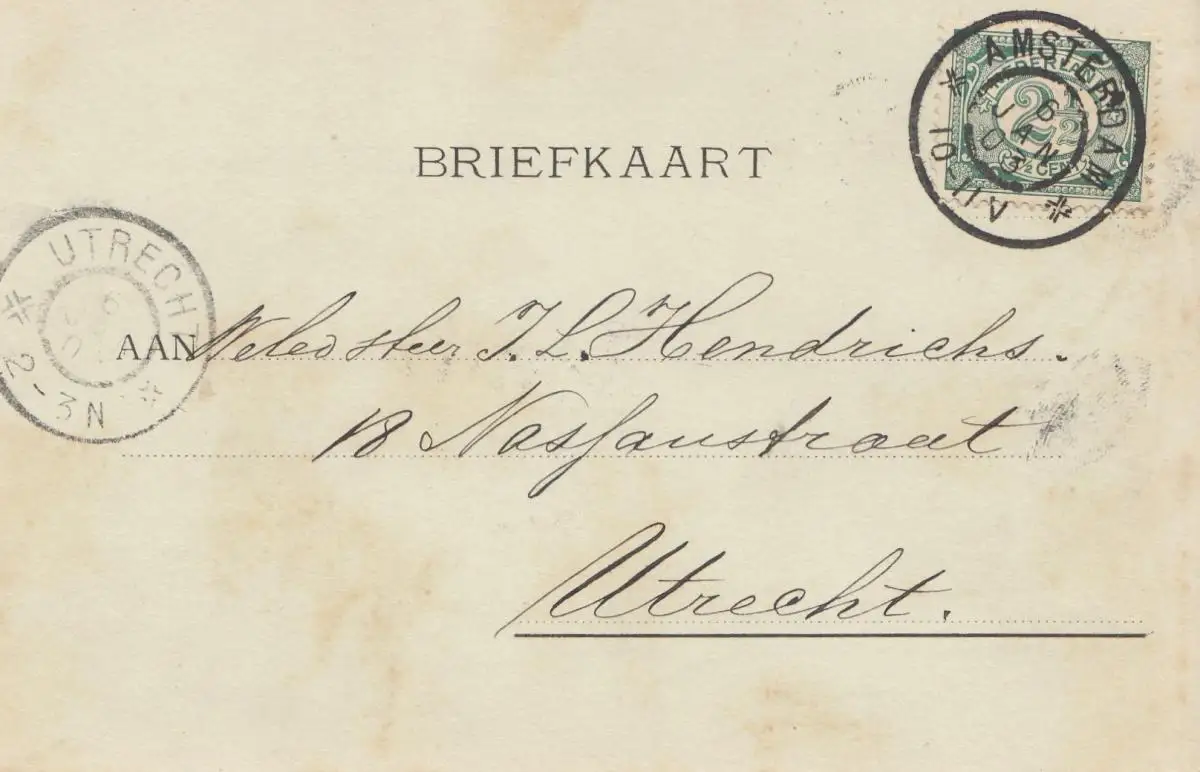 AMSTERDAM
6
JAN
03
10 11 V
NEDERLAND
2½
2½ CENT
BRIEFKAART
UTRECHT
6
2-3N
AAN Weled Heer J. L. Hendrichs.
18 Nassaustraat
Utrecht.